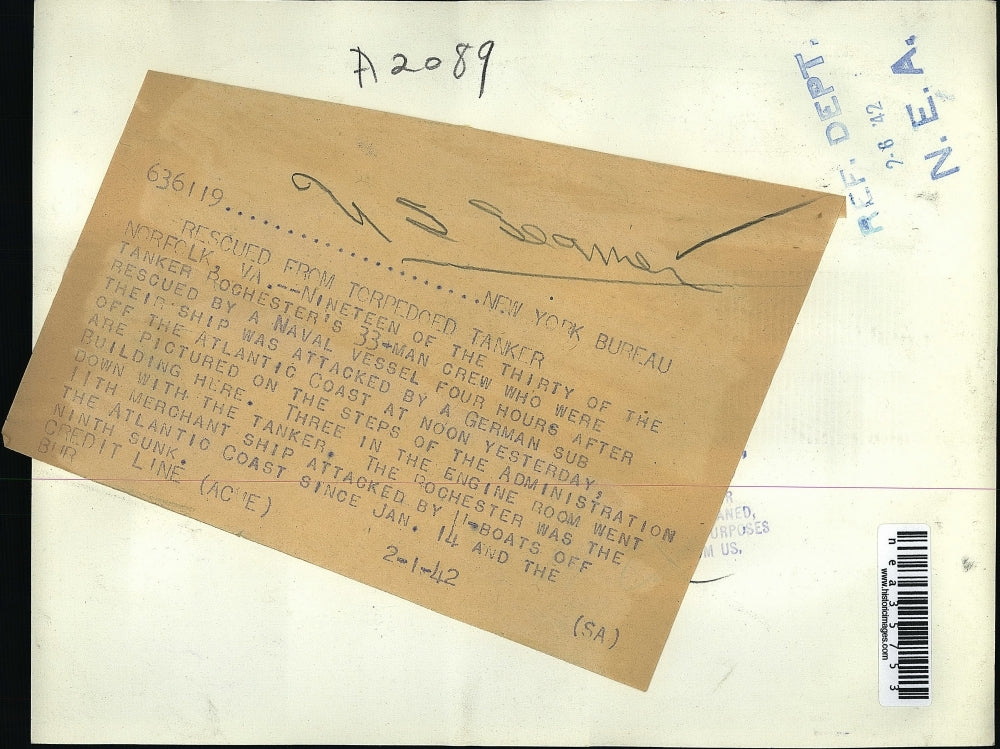 A2089
REF. DEPT.
2.8 '42
N. E. A.
U S Seamen
636119........................NEW YORK BUREAU
RESCUED FROM TORPEDOED TANKER
NORFOLK, VA.--NINETEEN OF THE THIRTY OF THE
TANKER ROCHESTER'S 33-MAN CREW WHO WERE
RESCUED BY A NAVAL VESSEL FOUR HOURS AFTER
THEIR SHIP WAS ATTACKED BY A GERMAN SUB
OFF THE ATLANTIC COAST AT NOON YESTERDAY,
ARE PICTURED ON THE STEPS OF THE ADMINISTRATION
BUILDING HERE. THREE IN THE ENGINE ROOM WENT
DOWN WITH THE TANKER. THE ROCHESTER WAS THE
11TH MERCHANT SHIP ATTACKED BY U-BOATS OFF
THE ATLANTIC COAST SINCE JAN. 14 AND THE
NINTH SUNK.
CREDIT LINE (ACME) 2-1-42
BUR (SA)
URPOSES
M US,
nea35753
www.historicimages.com